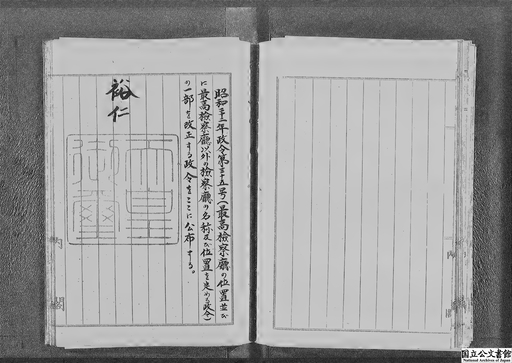 昭和二十二年政令第三十五号(最高檢察廳の位置並び
に最高檢察廳以外の檢察廳の名称及び位置を定める政令)
の一部を改正する政令をここに公布する。
裕仁
天皇
御璽
内閣
内閣
国立公文書館
National Archives of Japan